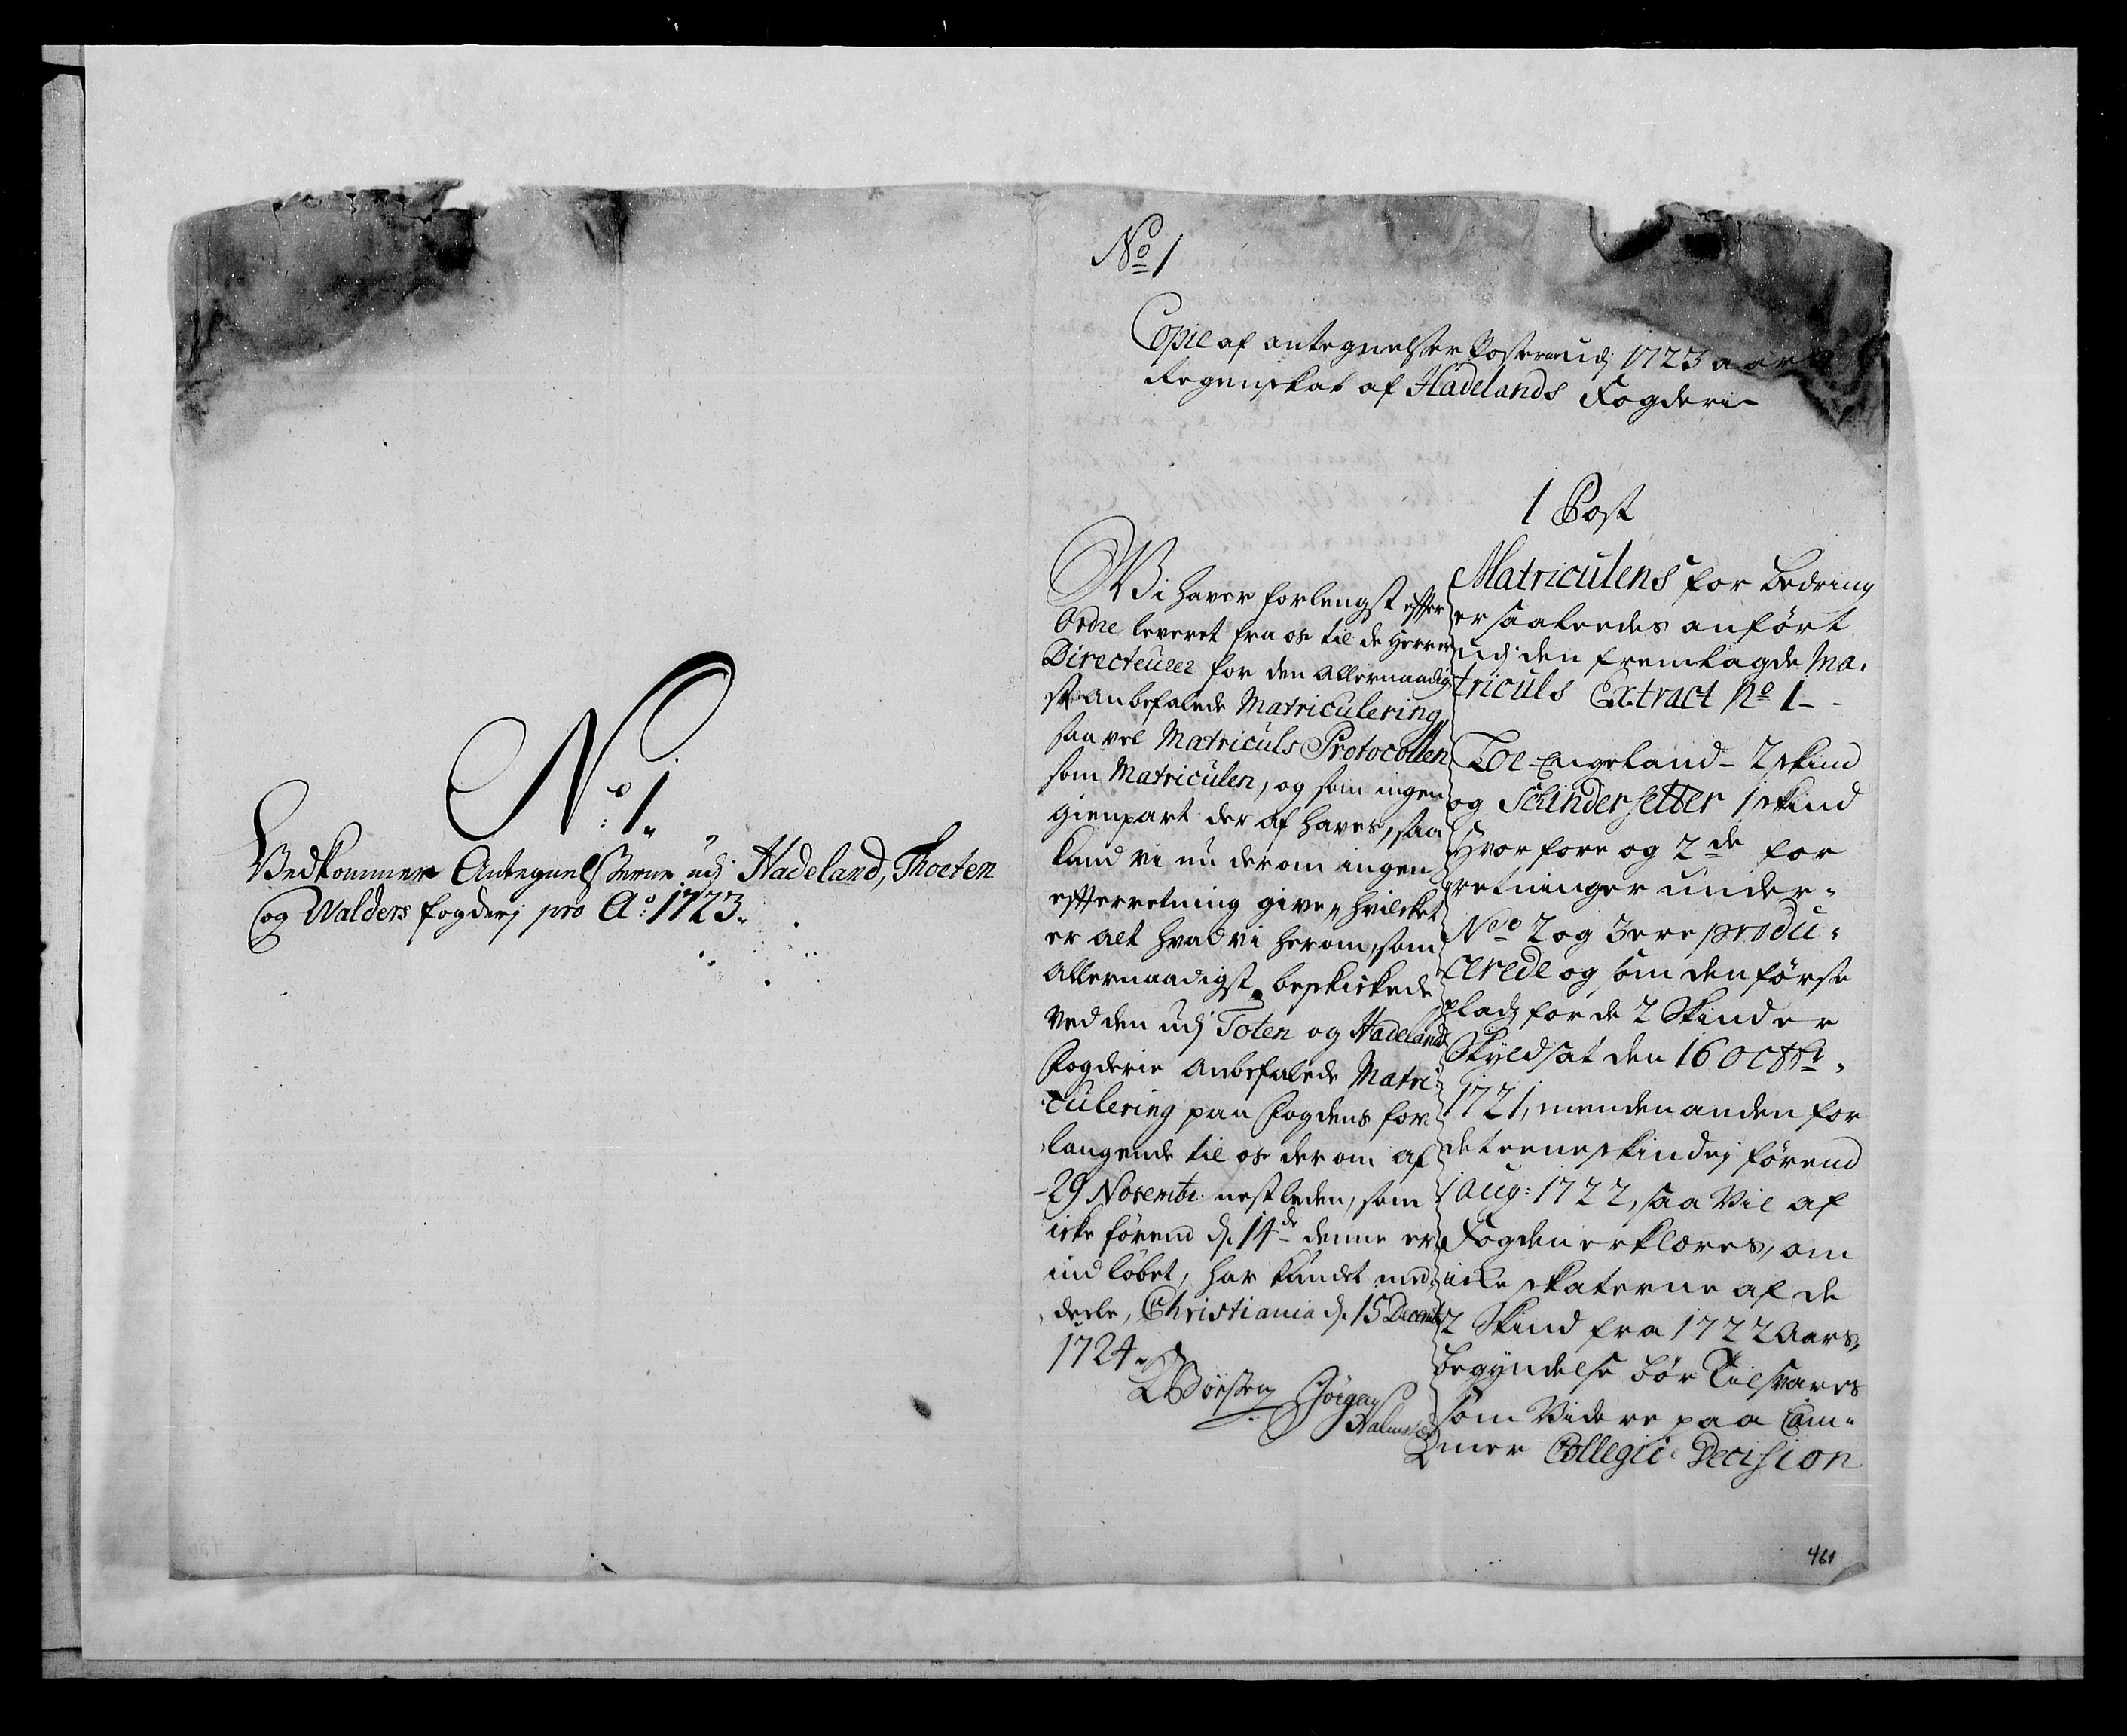 No: 1.
Vedkommer Antegnelserne udj Hadeland, Thoten
og Walders fogderj pro Ao: 1723.
No 1
Copie af antegnelser Poster udj 1723 aars
Regenskab af Hadelands Fogderie
Wi haver forlengst efter
Ordre leveret fra os til de Herrer
Directeurer for den Allernaadig
st anbefalede Matriculering
saa vel Matriculs Protocollen
som Matriculen, og som ingen
gienpart der af haves, saa
kand vi nu derom ingen
efterretning give, hvilcket
er alt hvad vi herom, som
Allernaadigst beskickede
ved den udj Toten og Hadeland
Fogderie Anbefalede Matri-
culering paa Fogdens for-
langende til os derom af
29 Novembr. nestleden, som
icke førend d. 14de denne er
indløbet, har kundet med-
deele, Christiania d. 15 Decembr
1724.
Børsten Jørgen
Halmst
1 Post
Matriculens forbedring
er saaledes anført
udj den fremlagde Ma-
triculs Extract No 1 - -
Loe Engeland - 2 skind
og Schindersetter 1 skind
Hvorfore og 2de for
retninger under-
No 2 og 3 ere produ-
cerede og som den første
pladz for de 2 Skind er
Skyldsat den 16 Octbr.
1721, men den anden for
det eene skind ej førend
1 Aug: 1722, saa Vil af
Fogden erklæres, om
icke skaterne af de
2 Skind fra 1722 Aars
begyndelse bør Tilsvares
som Videre paa Cam-
mer Collegii Decision
461